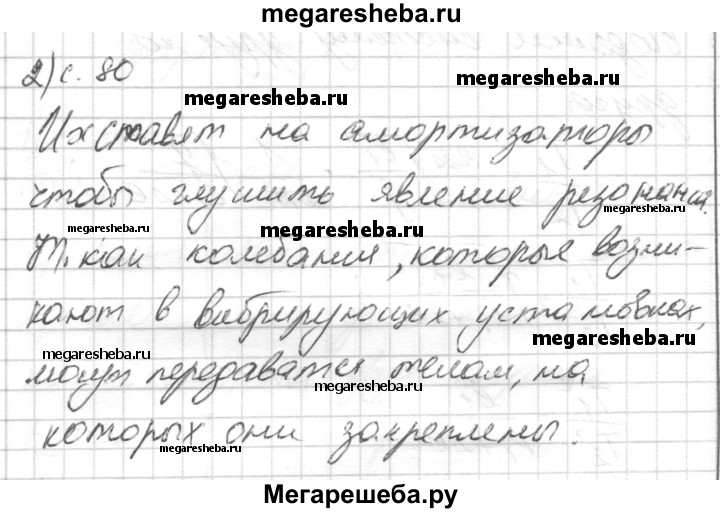 megaresheba.ru
2) с. 80
megaresheba.ru
megaresheba.ru
Их ставят на амортизаторы
megaresheba.ru
чтобы глушить явление резонанса.
megaresheba.ru
megaresheba.ru
Т.как колебания, которые возни-
кают в вибрирующих установках,
megaresheba.ru
megaresheba.ru
могут передаватся телам, на
megaresheba.ru
которых они закреплены.
Мегарешеба.ру